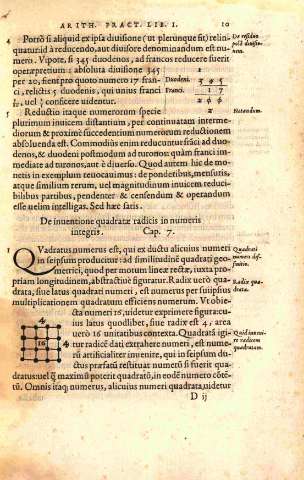 ARITH. PRACT. LIB. I. 10
4 Porrò si aliquid ex ipsa diuisione (ut plerunque sit) relin
quatur id à reducendo, aut diuisore denominandum est nu
mero. Vipote, si 345 duodenos, ad francos reducere fuerit
operæpretium: absoluta diuisione 345
per 20, fient pro quoto numero 17 fran-
ci, relictis 5 duodenis, qui unius franci
uel ¼ conficere uidentur.
De residuo
post diuisio-
nem.
Duodeni. 3 4 5
Franci. 1 7
2 0 0
5 Reductio itaque numerorum specie
plurimum inuicem distantium, per continuatam interme-
diorum & proximè succedentium numerorum reductionem
absoluenda est. Commodius enim reducuntur frāci ad duo-
denos, & duodeni postmodum ad turonos: quàm franci im-
mediatè ad turonos, aut è diuerso. Quod autem hic de mo-
netis in exemplum reuocauimus: de ponderibus, mensuris,
atque similium rerum, uel magnitudinum inuicem reduci-
bilibus partibus, pendenter & censendum & operandum
esse uelim intelligas. Sed hæc satis.
Notandum.
De inuentione quadratæ radicis in numeris
integris. Cap. 7.
1 QVadratus numerus est, qui ex ductu alicuius numeri
in seipsum producitur: ad similitudinē quadrati geo-
metrici, quod per motum lineæ rectæ, iuxta pro-
priam longitudinem, abstractiuè figuratur. Radix uerò qua-
drata, siue latus quadrati numeri, est numerus per suiipsius
multiplicationem quadratum efficiens numerum. Vt obie-
cta numeri 16, uidetur exprimere figura: cu-
ius latus quodlibet, siue radix est 4, area
uerò 16 unitatibus contexta. Quadrati igi-
tur radicē dati extrahere numeri, est nume-
rū artificialiter inuenire, qui in seipsum du-
ctus præfatū restituat numerū si fuerit qua-
dratus: uel q̄ maximū poterit quadratū, in eodē numero cōtē-
tū. Omnis itaq; numerus, alicuius numeri quadratus, uidetur
Quadrati
numeri dif-
finitio.
Radix qua-
drata.
Quid inueni-
re radicem
quadratam.
4
4 16
D ij